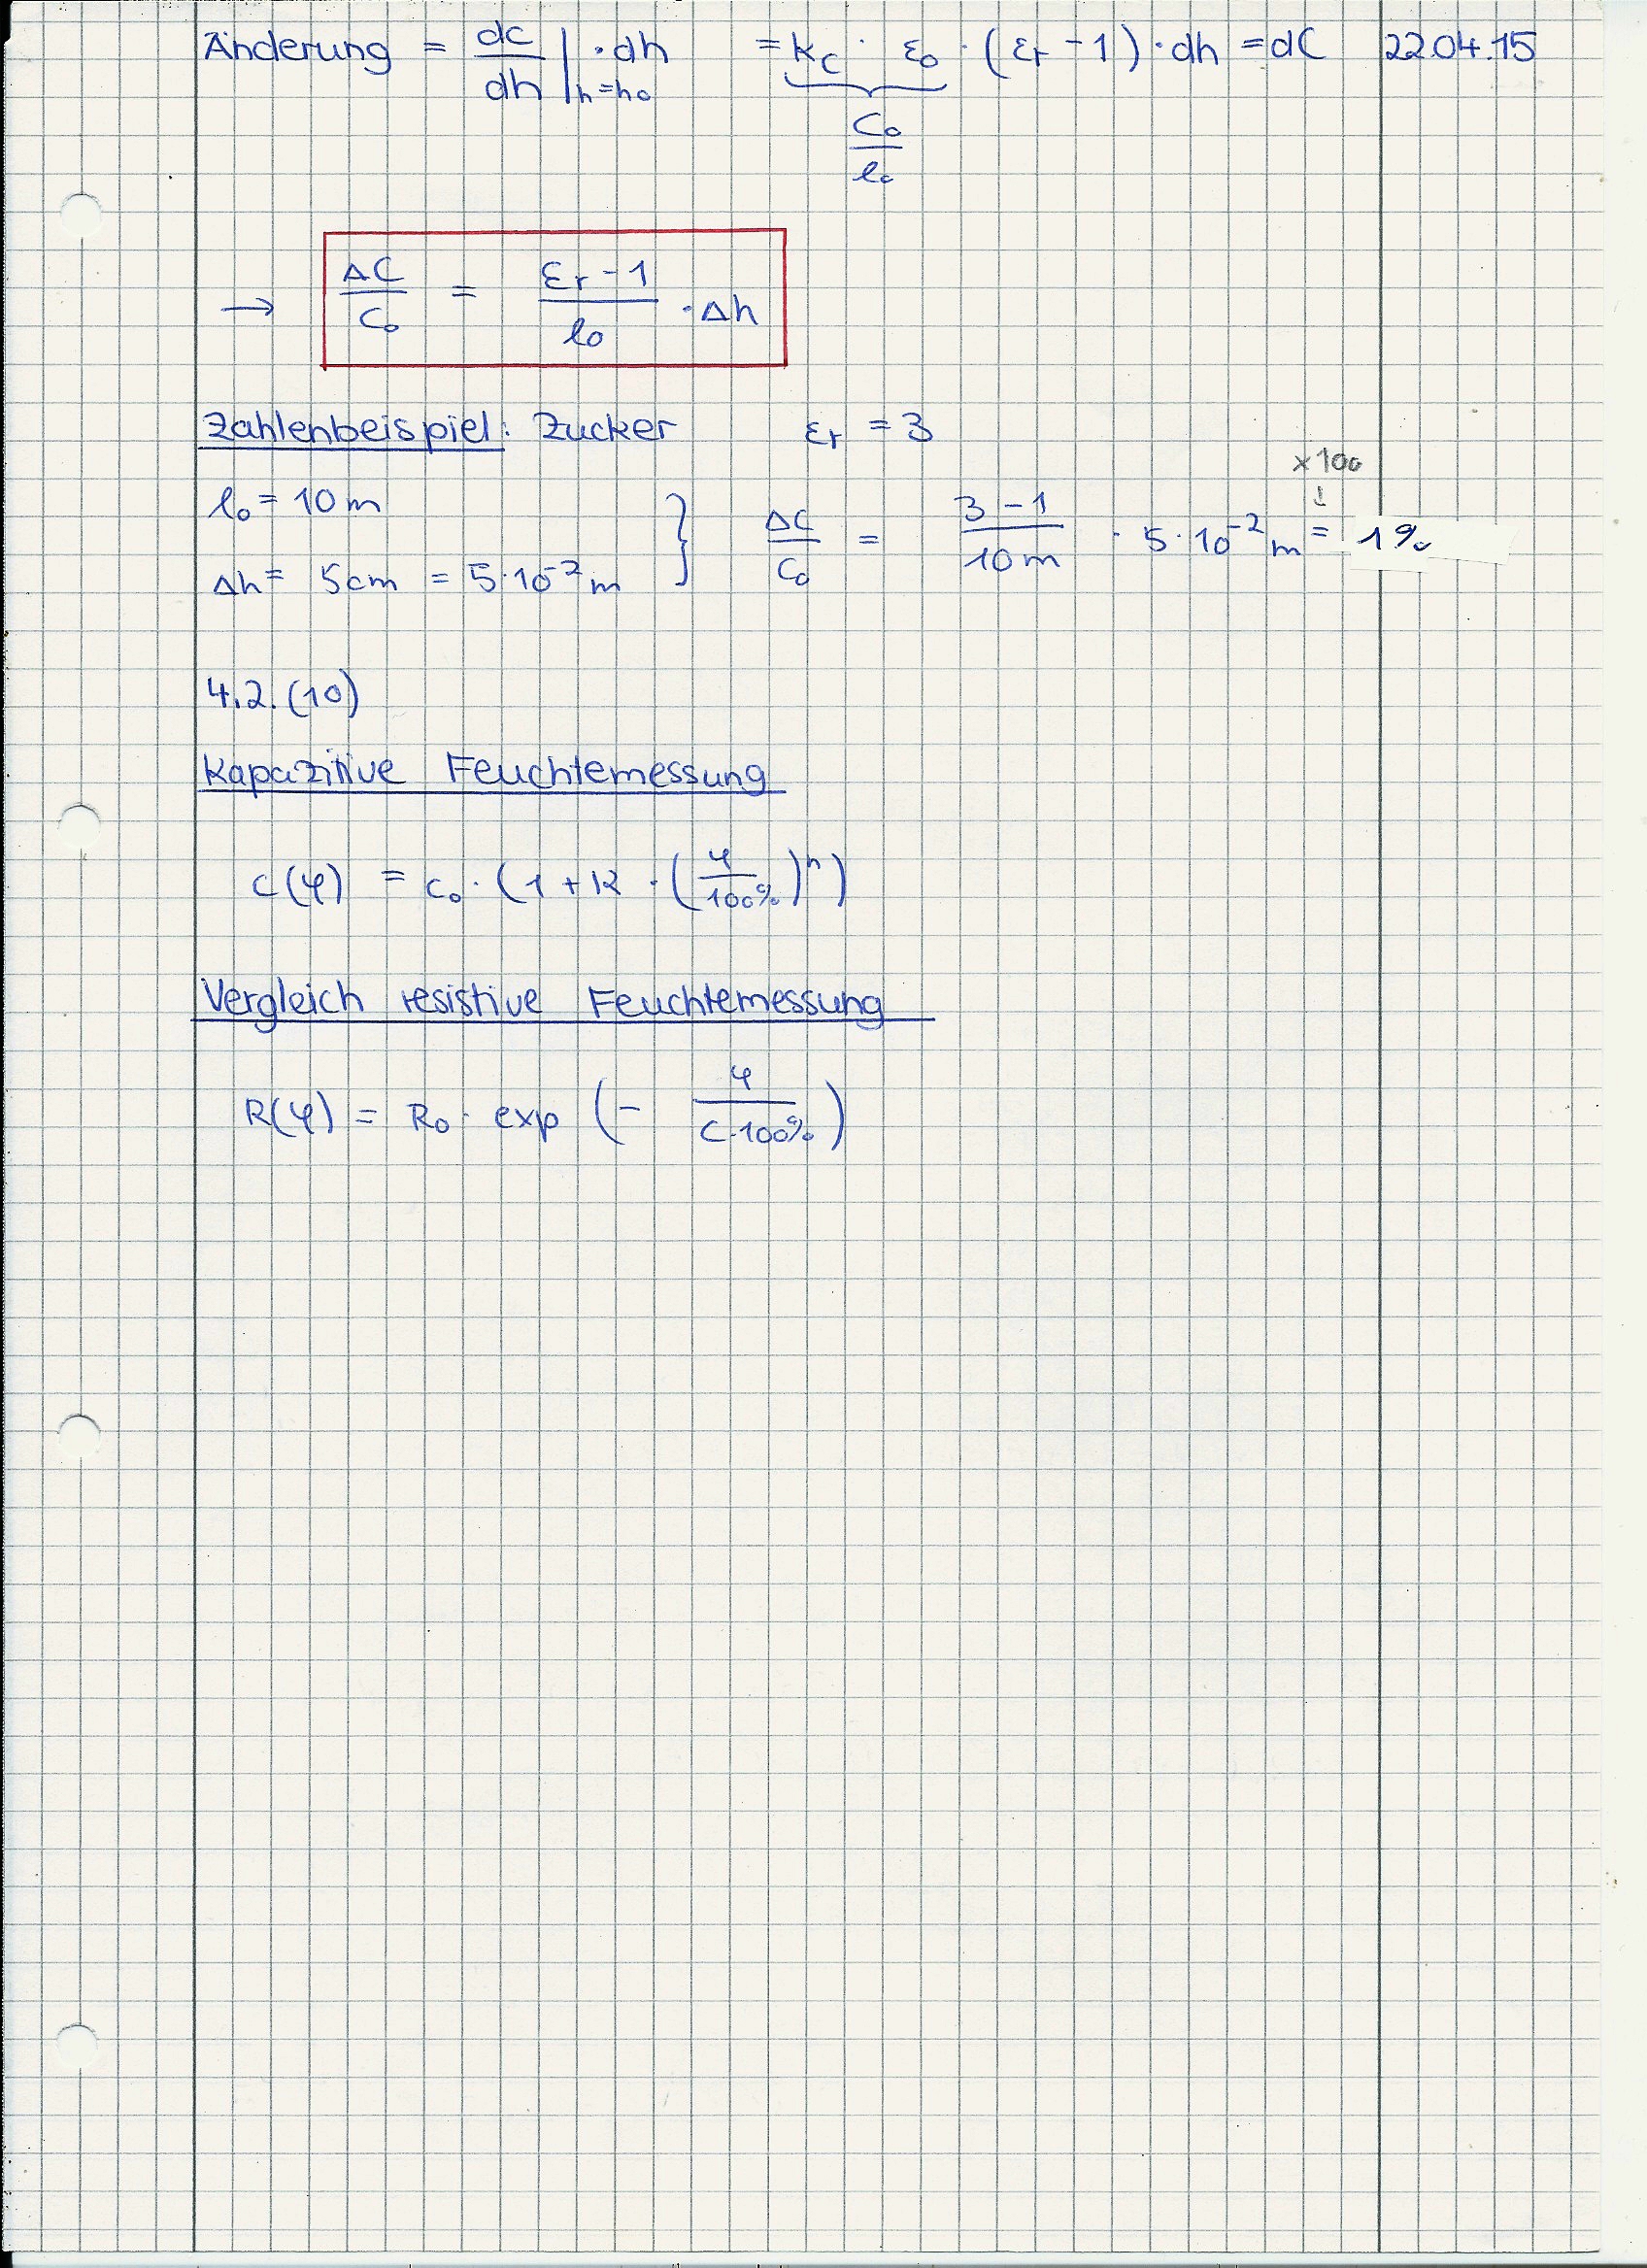 Änderung = dC/dh |h=h₀ · dh = kc · ε₀ · (εr - 1) · dh = dC 22.04.15
C₀/l₀
→ ΔC/C₀ = (εr - 1)/l₀ · Δh
Zahlenbeispiel: Zucker εr = 3
x100
↓
l₀ = 10 m
Δh = 5cm = 5·10⁻² m } ΔC/C₀ = (3 - 1)/10 m · 5·10⁻² m = 1%
4.2.(10)
Kapazitive Feuchtemessung
C(φ) = C₀ · (1 + K · (φ/100%)ⁿ)
Vergleich resistive Feuchtemessung
R(φ) = R₀ · exp (- φ/(C·100%))